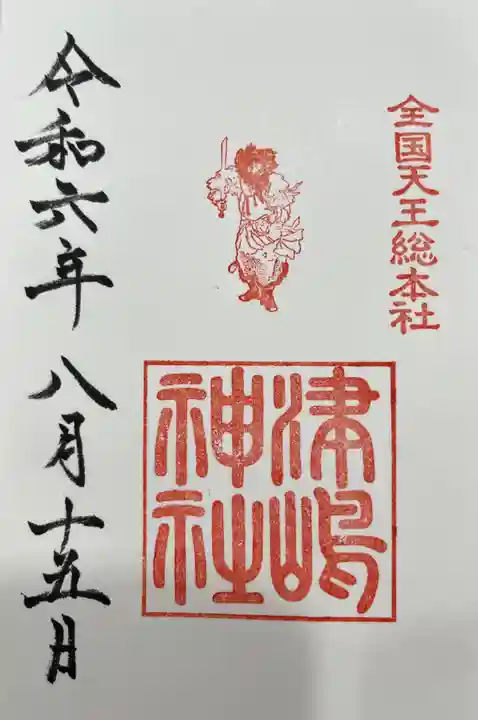 全国天王総本社
津嶋
神社
令和六年八月十五日